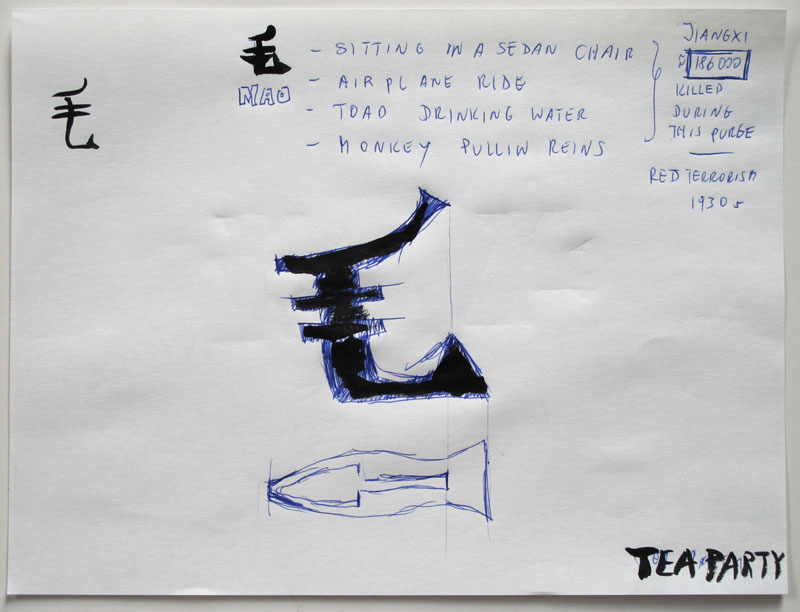 毛
MAO
- SITTING IN A SEDAN CHAIR
- AIRPLANE RIDE
- TOAD DRINKING WATER
- MONKEY PULLIN REINS
JIANGXI
~ 186000
KILLED
DURING
THIS PURGE
RED TERRORISM
1930s
毛
毛
TEA PARTY